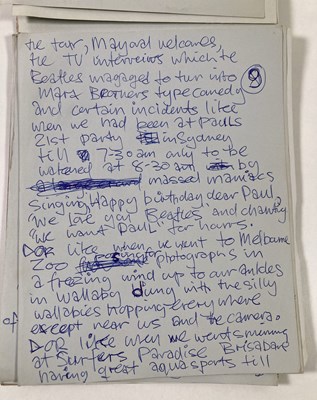 the tour, Mayoral welcomes,
the TV interveiws which the
Beatles mangaged to turn into
Marx Brothers type comedy
9
and certain incidents like
when we had been at Pauls
21st party in Sydney
till 7-30am only to be
wakened at 8-30am by
massed maniacs
singing Happy birthday dear Paul,
"We love you Beatles and chanting
"WE want PAUL" for hours.
OR like when we went to Melbourne
Zoo posing for photographs in
a freezing wind up to our ankles
in wallaby dung with the silly
wallabies hopping everywhere
except near us and the camera.
of
OR like when we went swimming
at Surfers Paradise Brisbane
having great aquasports till